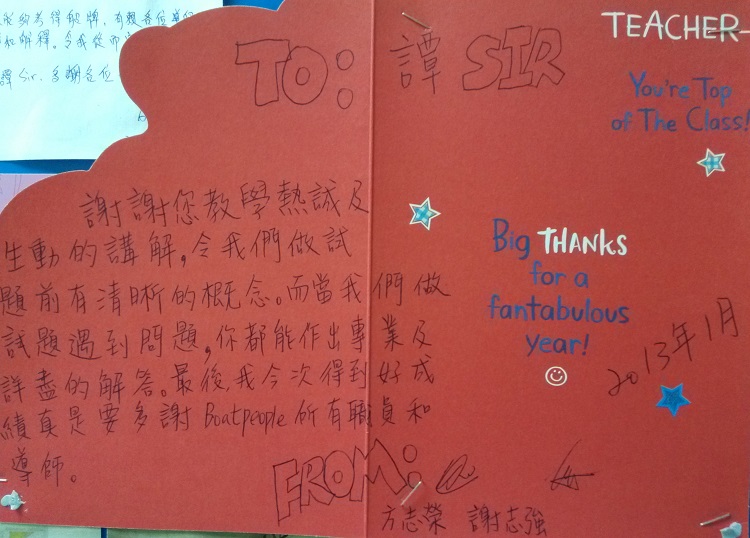 TO: 譚 SIR
謝謝您教學熱誠及
生動的講解,令我們做試
題前有清晰的概念。而當我們做
試題遇到問題,你都能作出專業及
詳盡的解答。最後,我今次得到好成
績真是要多謝 Boatpeople 所有職員和
導師。
FROM:
方志榮 謝志強
TEACHER-
You're Top
of The Class!
Big THANKS
for a
fantabulous
year!
2013年1月
解釋。令我從而
譚 Sir. 多謝各位